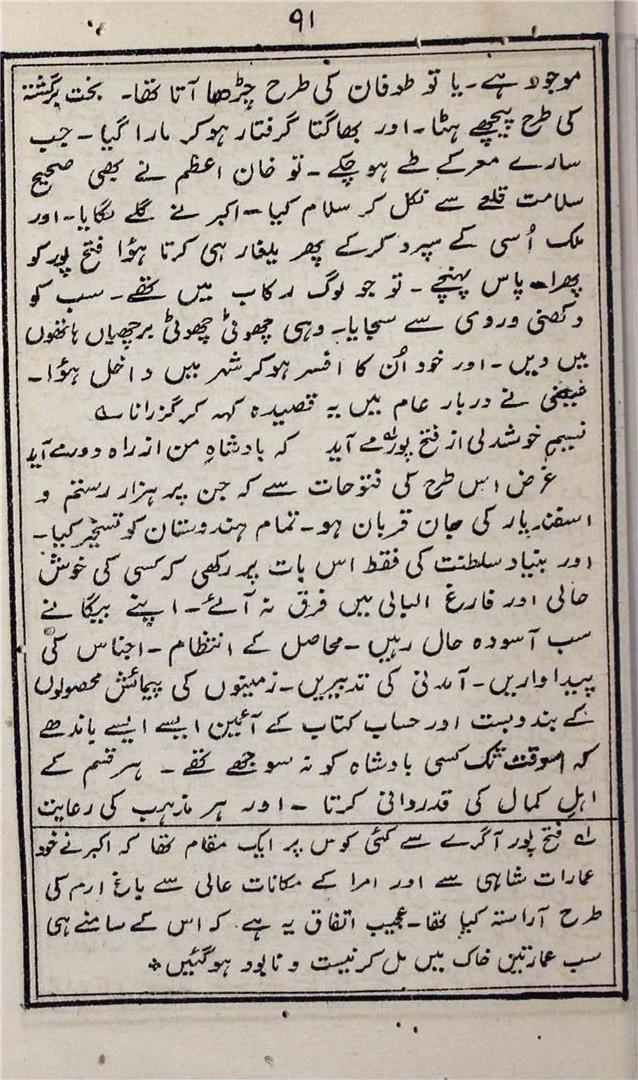 ۹۱
موجود ہے۔ یا تو طوفان کی طرح چڑھا آتا تھا۔ بخت برگشتہ
کی طرح پیچھے ہٹا۔ اور بھاگتا گرفتار ہوکر مارا گیا۔ جب
سارے معرکے طے ہوچکے۔ تو خان اعظم نے بھی صحیح
سلامت قلعے سے نکل کر سلام کیا۔ اکبر نے گلے لگایا۔ اور
ملک اُسی کے سپرد کرکے پھر یلغار ہی کرتا ہؤا فتح پور کو
پھرا۔ پاس پہنچے۔ تو جو لوگ رکاب میں تھے۔ سب کو
دکھنی وردی سے سجایا۔ وہی چھوٹی چھوٹی برچھیاں ہاتھوں
میں دیں۔ اور خود اُن کا افسر ہوکر شہر میں داخل ہؤا۔
فیضی نے دربار عام میں یہ قصیدہ کہہ کر گزرانا ؎
نسیمِ خوشدلی از فتح پور۱ے مے آید کہ بادشاہِ من از راہ دور مے آید
غرض اس طرح کی فتوحات سے کہ جن پر ہزار رستم و
اسفندیار کی جان قربان ہو۔ تمام ہندوستان کو تسخیر کیا۔
اور بنیاد سلطنت کی فقط اس بات پر رکھی کہ کسی کی خوش
حالی اور فارغ البالی میں فرق نہ آئے۔ اپنے بیگانے
سب آسودہ حال رہیں۔ محاصل کے انتظام۔ اجناس کی
پیداواریں۔ آمدنی کی تدبیریں۔ زمینوں کی پیمائش محصولوں
کے بندوبست اور حساب کتاب کے آئین ایسے ایسے باندھے
کہ اسوقت تک کسی بادشاہ کو نہ سوجھے تھے۔ ہر قسم کے
اہلِ کمال کی قدردانی کرتا۔ اور ہر مذہب کی رعایت
۱ے فتح پور آگرے سے کئی کوس پر ایک مقام تھا کہ اکبر نے خود
عمارات شاہی سے اور امرا کے مکانات عالی سے باغ ارم کی
طرح آراستہ کیا تھا۔ عجیب اتفاق یہ ہے کہ اس کے سامنے ہی
سب عمارتیں خاک میں مل کر نیست و نابود ہوگئیں *